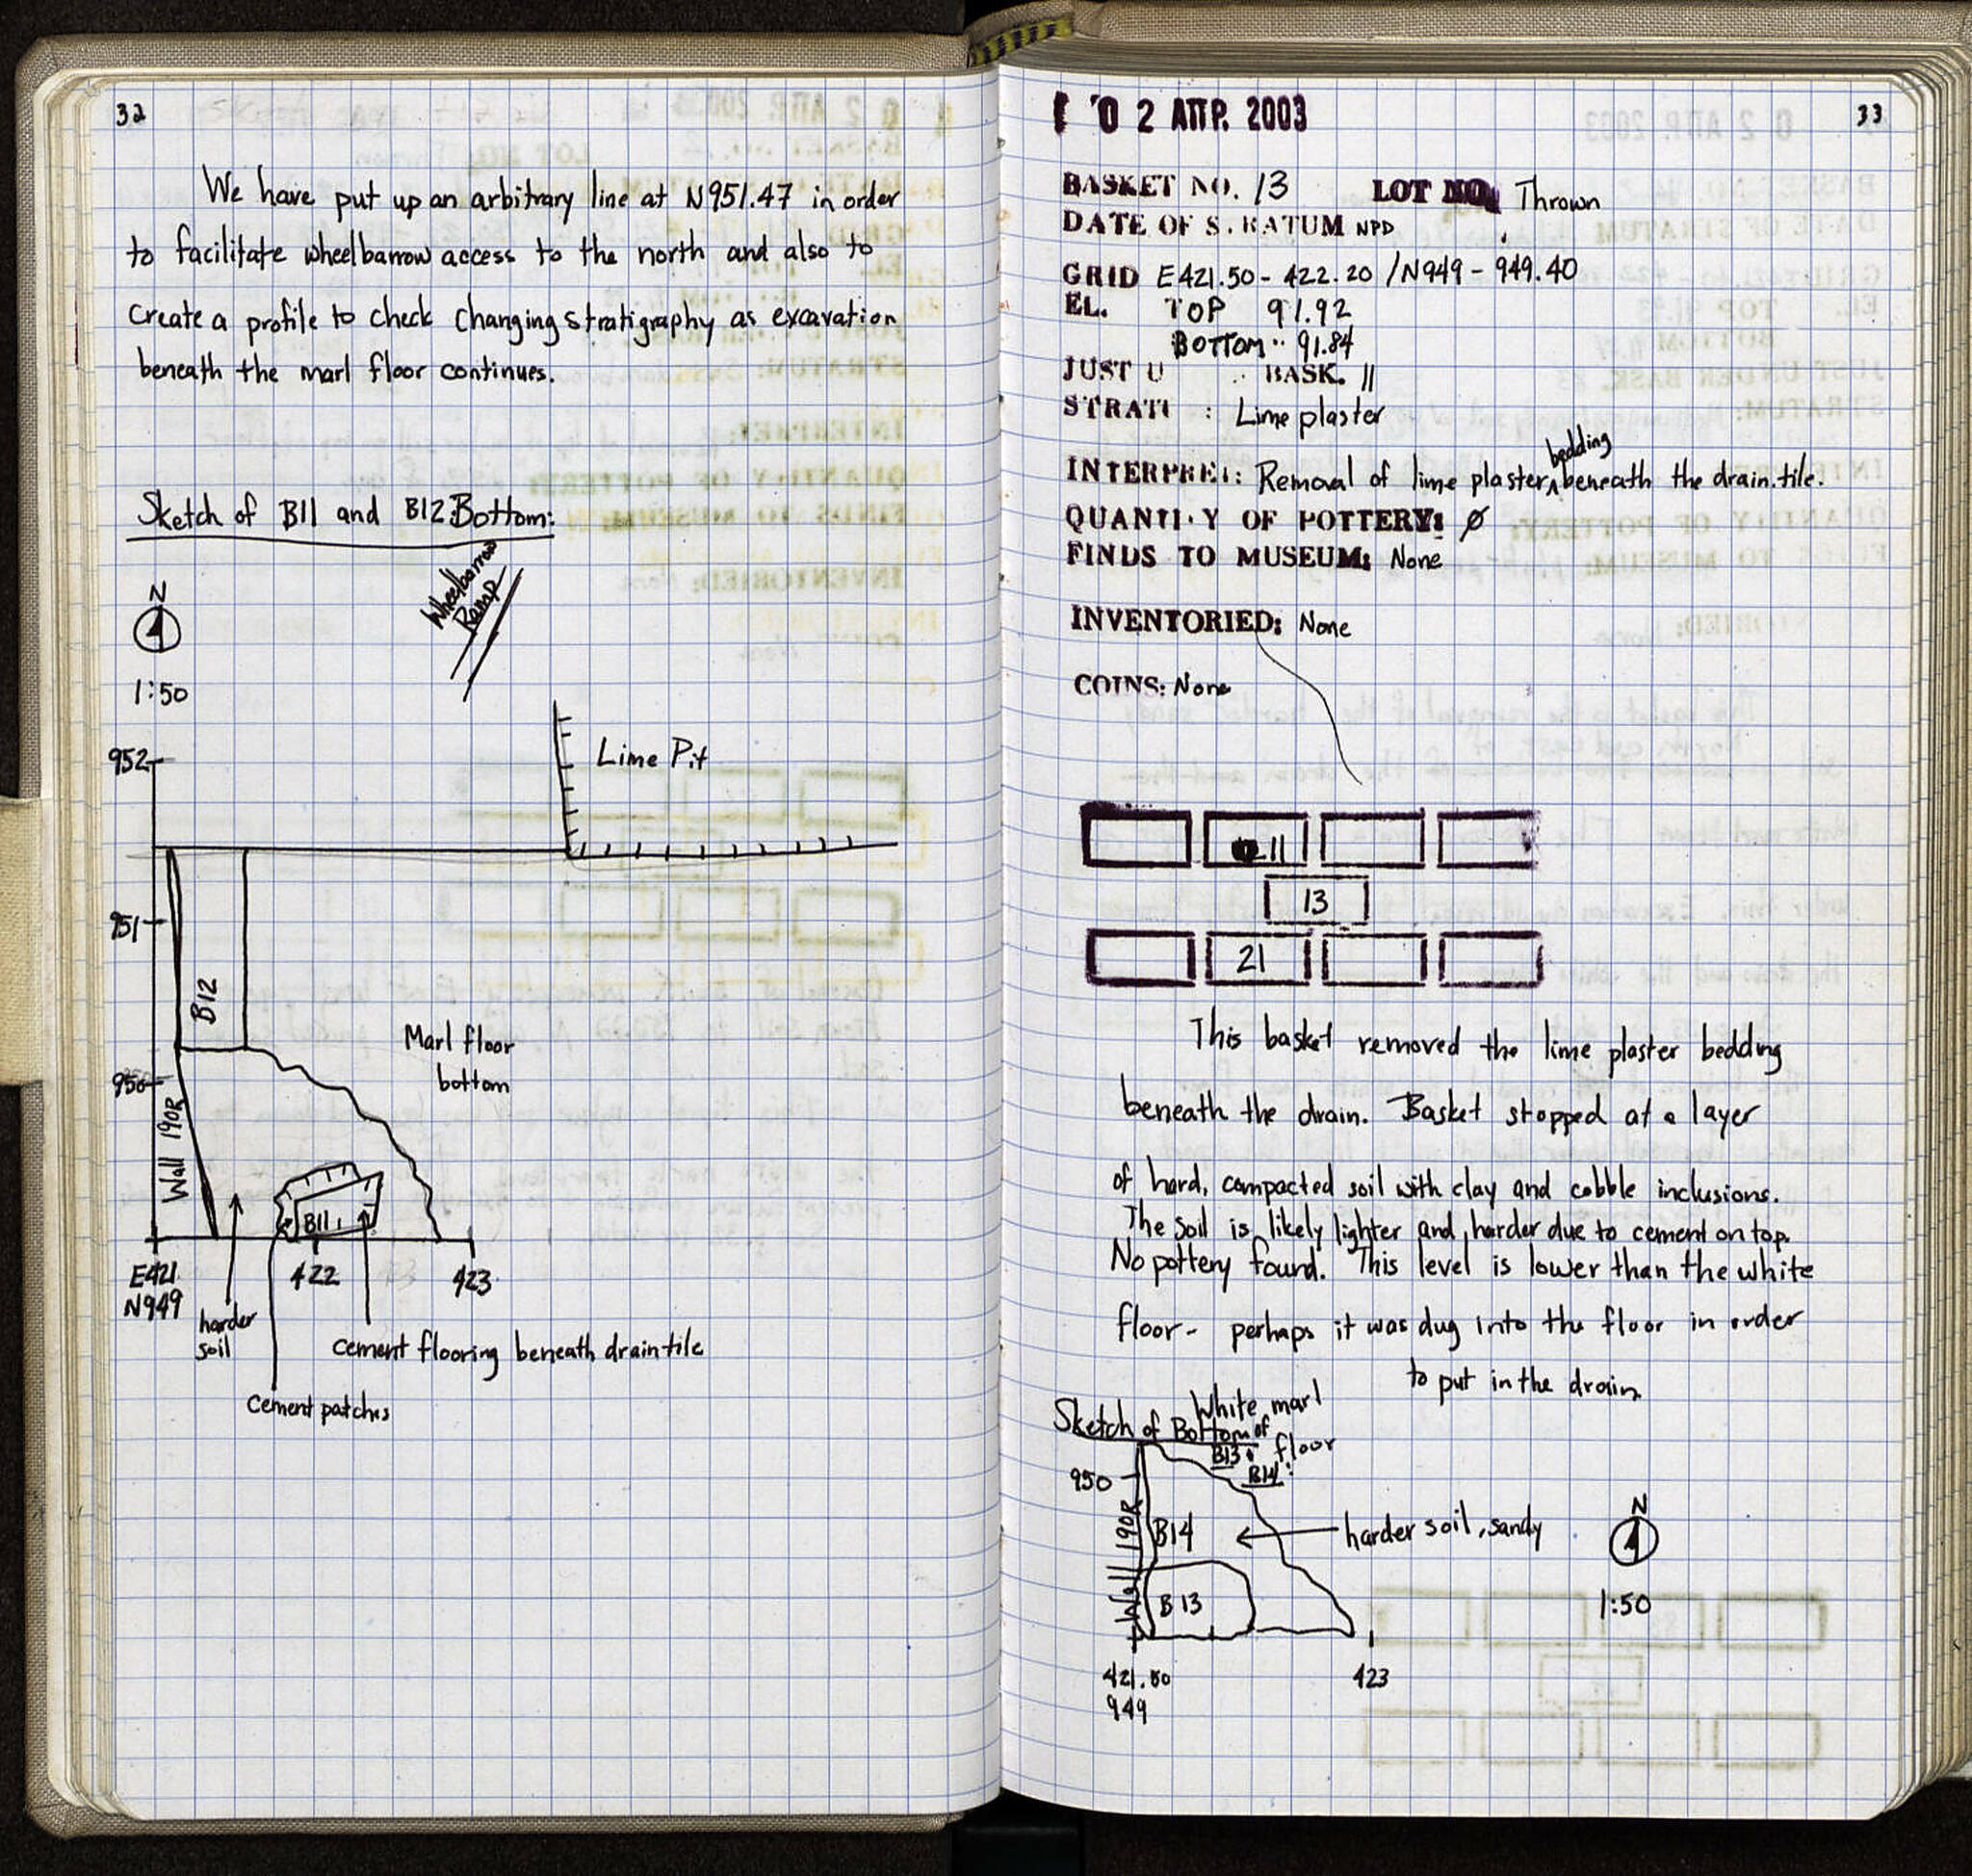 32
We have put up an arbitrary line at N951.47 in order
to facilitate wheelbarrow access to the north and also to
Create a profile to check changing stratigraphy as excavation
beneath the marl floor continues.
Sketch of B11 and B12 Bottom:
Wheelbarrow
Ramp
N
1:50
952
Lime Pit
951
B12
Marl floor
bottom
950
Wall 190R
B11
E421
N949
422
423
harder
soil
cement flooring beneath drain tile
Cement patches
0 2 ΑΠΡ. 2003
33
BASKET NO. 13 LOT NO. Thrown
DATE OF S. RATUM NPD
GRID E421.50 - 422.20 / N949 - 949.40
EL. TOP 91.92
BOTTOM 91.84
JUST U BASK. 11
STRATU : Lime plaster
bedding
INTERPRET: Removal of lime plaster ^ beneath the drain tile.
QUANTITY OF POTTERY: Ø
FINDS TO MUSEUM: None
INVENTORIED: None
COINS: None
11
13
21
This basket removed the lime plaster bedding
beneath the drain. Basket stopped at a layer
of hard, compacted soil with clay and cobble inclusions.
The soil is likely lighter and harder due to cement on top.
No pottery found. This level is lower than the white
floor - perhaps it was dug into the floor in order
to put in the drain.
Sketch of Bottom of
B13
B14:
White marl
floor
950
Wall 190R
B14
harder soil, sandy
N
B13
1:50
421.50
949
423